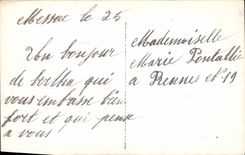 Messac le 25
Un bonjour
de bertha qui
vous embrasse bien
fort et qui pense
a vous
Mademoiselle
Marie Pontallié
a Rennes N° 19